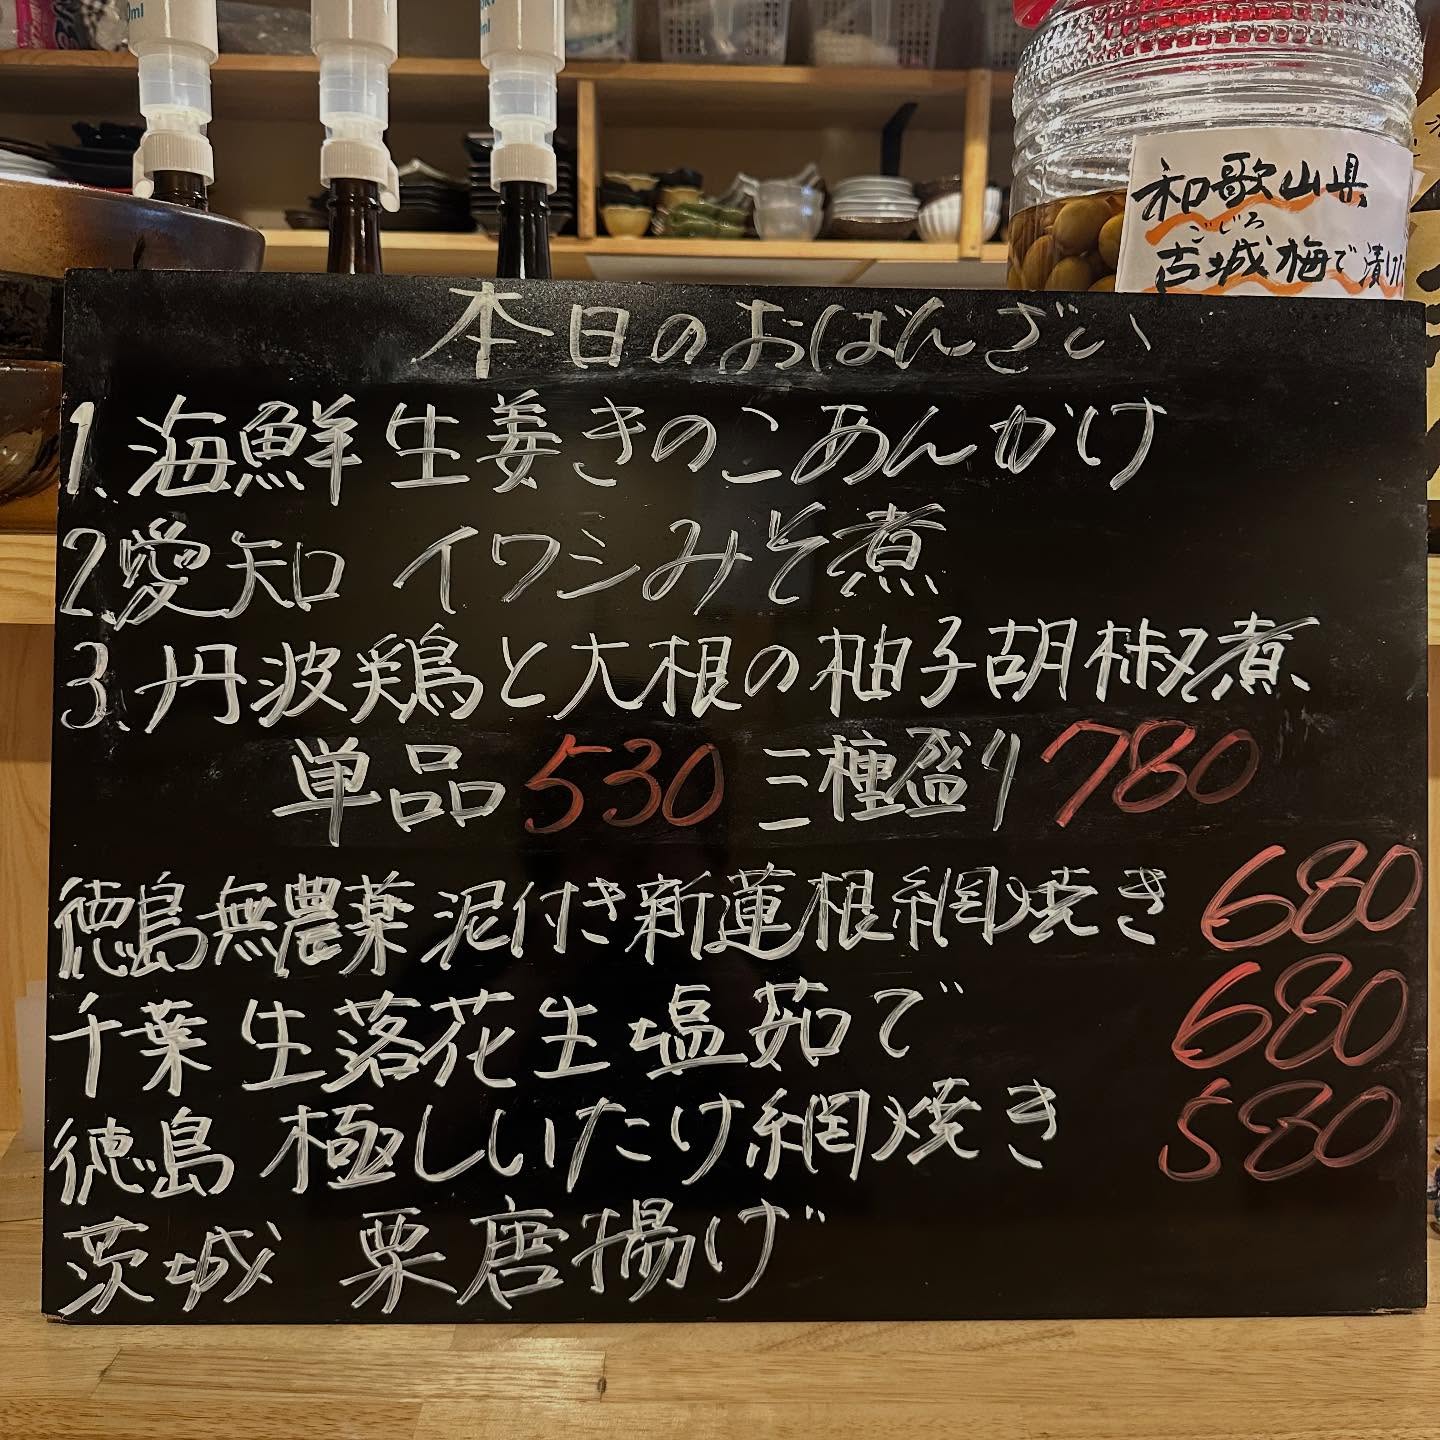 和歌山県
ごじろ
古城梅で漬け
本日のおばんざい
1.海鮮生姜きのこあんかけ
2.愛知 イワシみそ煮
3.丹波鶏と大根の柚子胡椒煮
単品530 三種盛り780
徳島無農薬泥付き新蓮根網焼き 680
千葉 生落花生 塩茹で 680
徳島 極しいたけ網焼き 580
茨城 栗唐揚げ